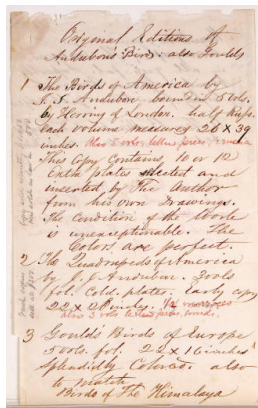 Original Editions of
Audubon's Birds also Goulds
1 The Birds of America by
J. J. Audubon bound in 5 vols.
by Herring of London. half Rus.
Each volume measures 26 X 39
inches. Also 5 vols. letter press,
This Copy Contains 10 or 12
Extra plates selected and
inserted by The Author
from his own Drawings.
The Condition of the Work
is unexceptionable. The
Colors are perfect.
2 The Quadrupeds of America
by J. J. Audubon. 2 vols
fol. Cold. plates. Early copy
22 x 28 inches.
also 3 vols letter press,
3 Gould's Birds of Europe
5 vols. fol. 22 x 16 inches
Splendidly Colored. also
to match
Birds of The Himalaya